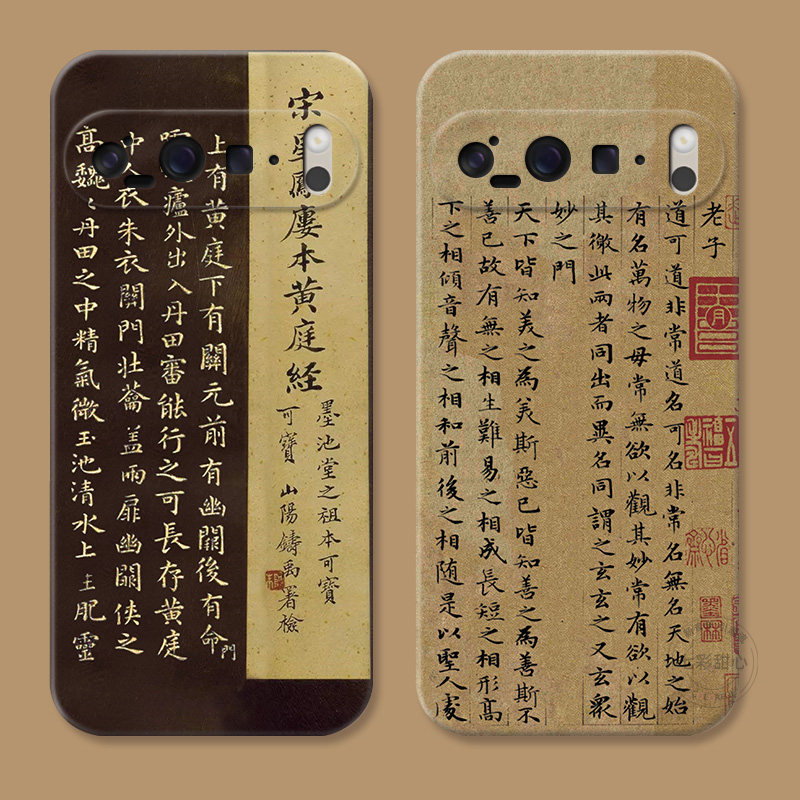 宋星鳳廔本黃庭経
墨池堂之祖本可寶
可寶 山陽鑄禹署檢
上有黃庭下有關元前有幽闕後有命門
廬外出入丹田審能行之可長存黃庭
中人衣朱衣關門壮蘥蓋兩扉幽闕侠之
高巍〻丹田之中精氣微玉池清水上生肥靈
老子
道可道非常道名可名非常名無名天地之始
有名萬物之母常無欲以觀其妙常有欲以觀
其徼此兩者同出而異名同謂之玄玄之又玄眾
妙之門
天下皆知美之為美斯惡已皆知善之為善斯不
善已故有無之相生難易之相成長短之相形高
下之相傾音聲之相和前後之相随是以聖人處
彩甜心